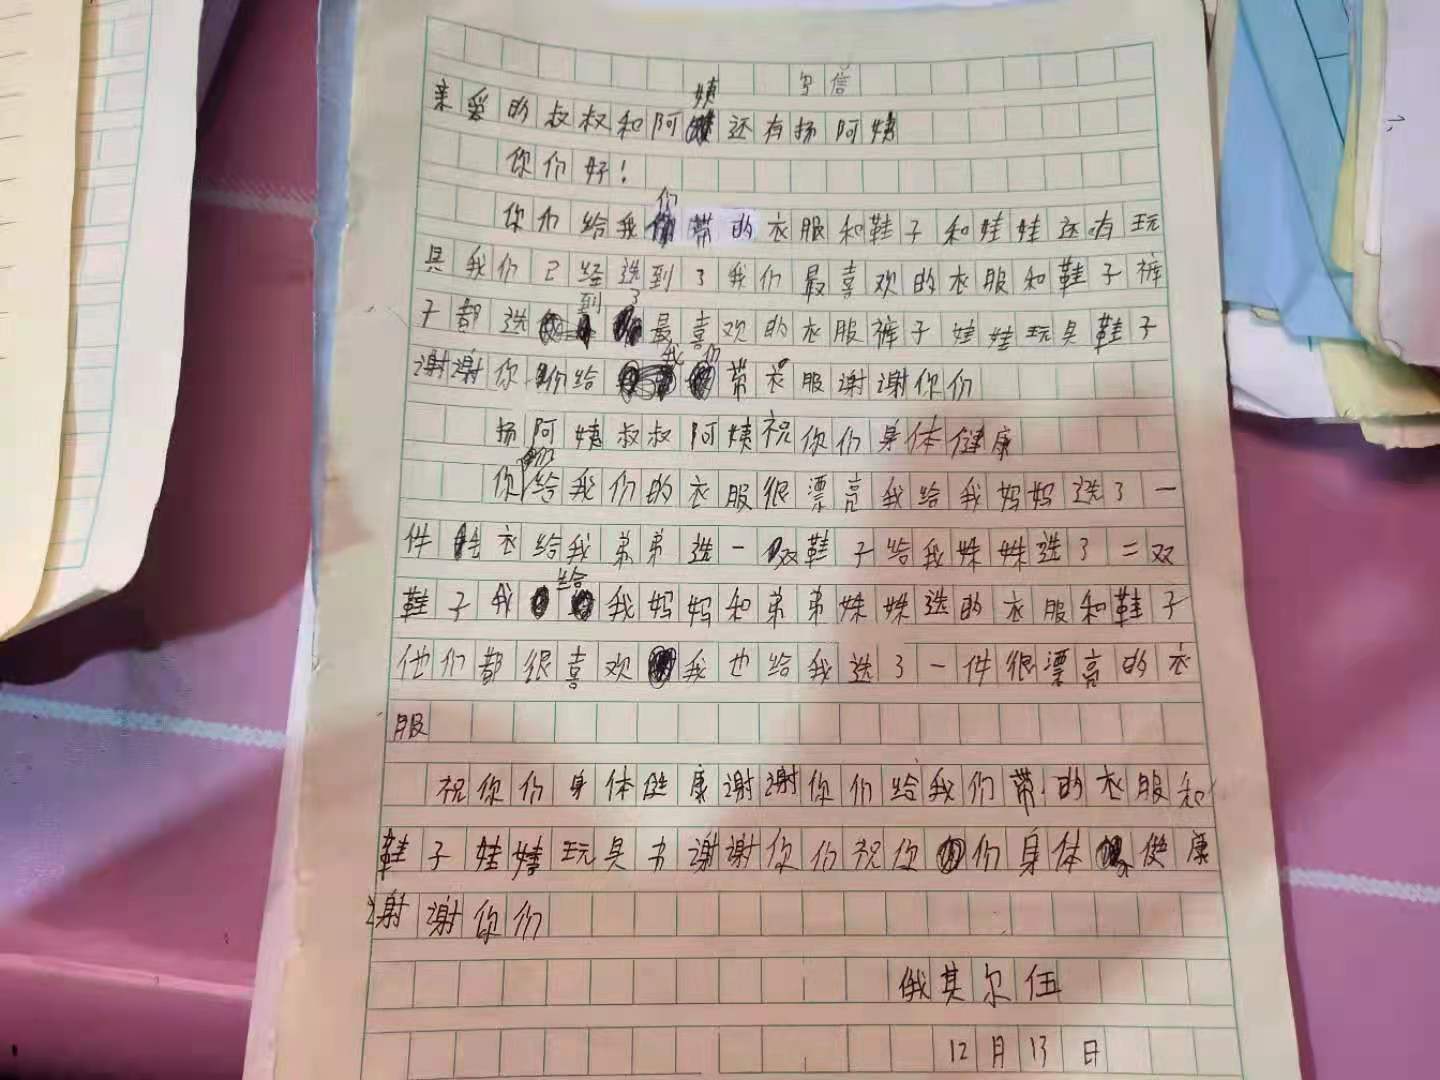 写信
亲爱的叔叔和阿姨还有扬阿姨
你们好！
你们给我们带的衣服和鞋子和娃娃还有玩
具我们已经选到了我们最喜欢的衣服和鞋子裤
子都选到了最喜欢的衣服裤子娃娃玩具鞋子
谢谢你们给我们带衣服谢谢你们
扬阿姨叔叔阿姨祝你们身体健康
你们给我们的衣服很漂亮我给我妈妈选了一
件毛衣给我弟弟选一双鞋子给我妹妹选了二双
鞋子我给我妈妈和弟弟妹妹选的衣服和鞋子
他们都很喜欢我也给我选了一件很漂亮的衣
服
祝你们身体健康谢谢你们给我们带的衣服和
鞋子娃娃玩具书谢谢你们祝你们身体健康
谢谢你们
俄其尔伍
12月13日